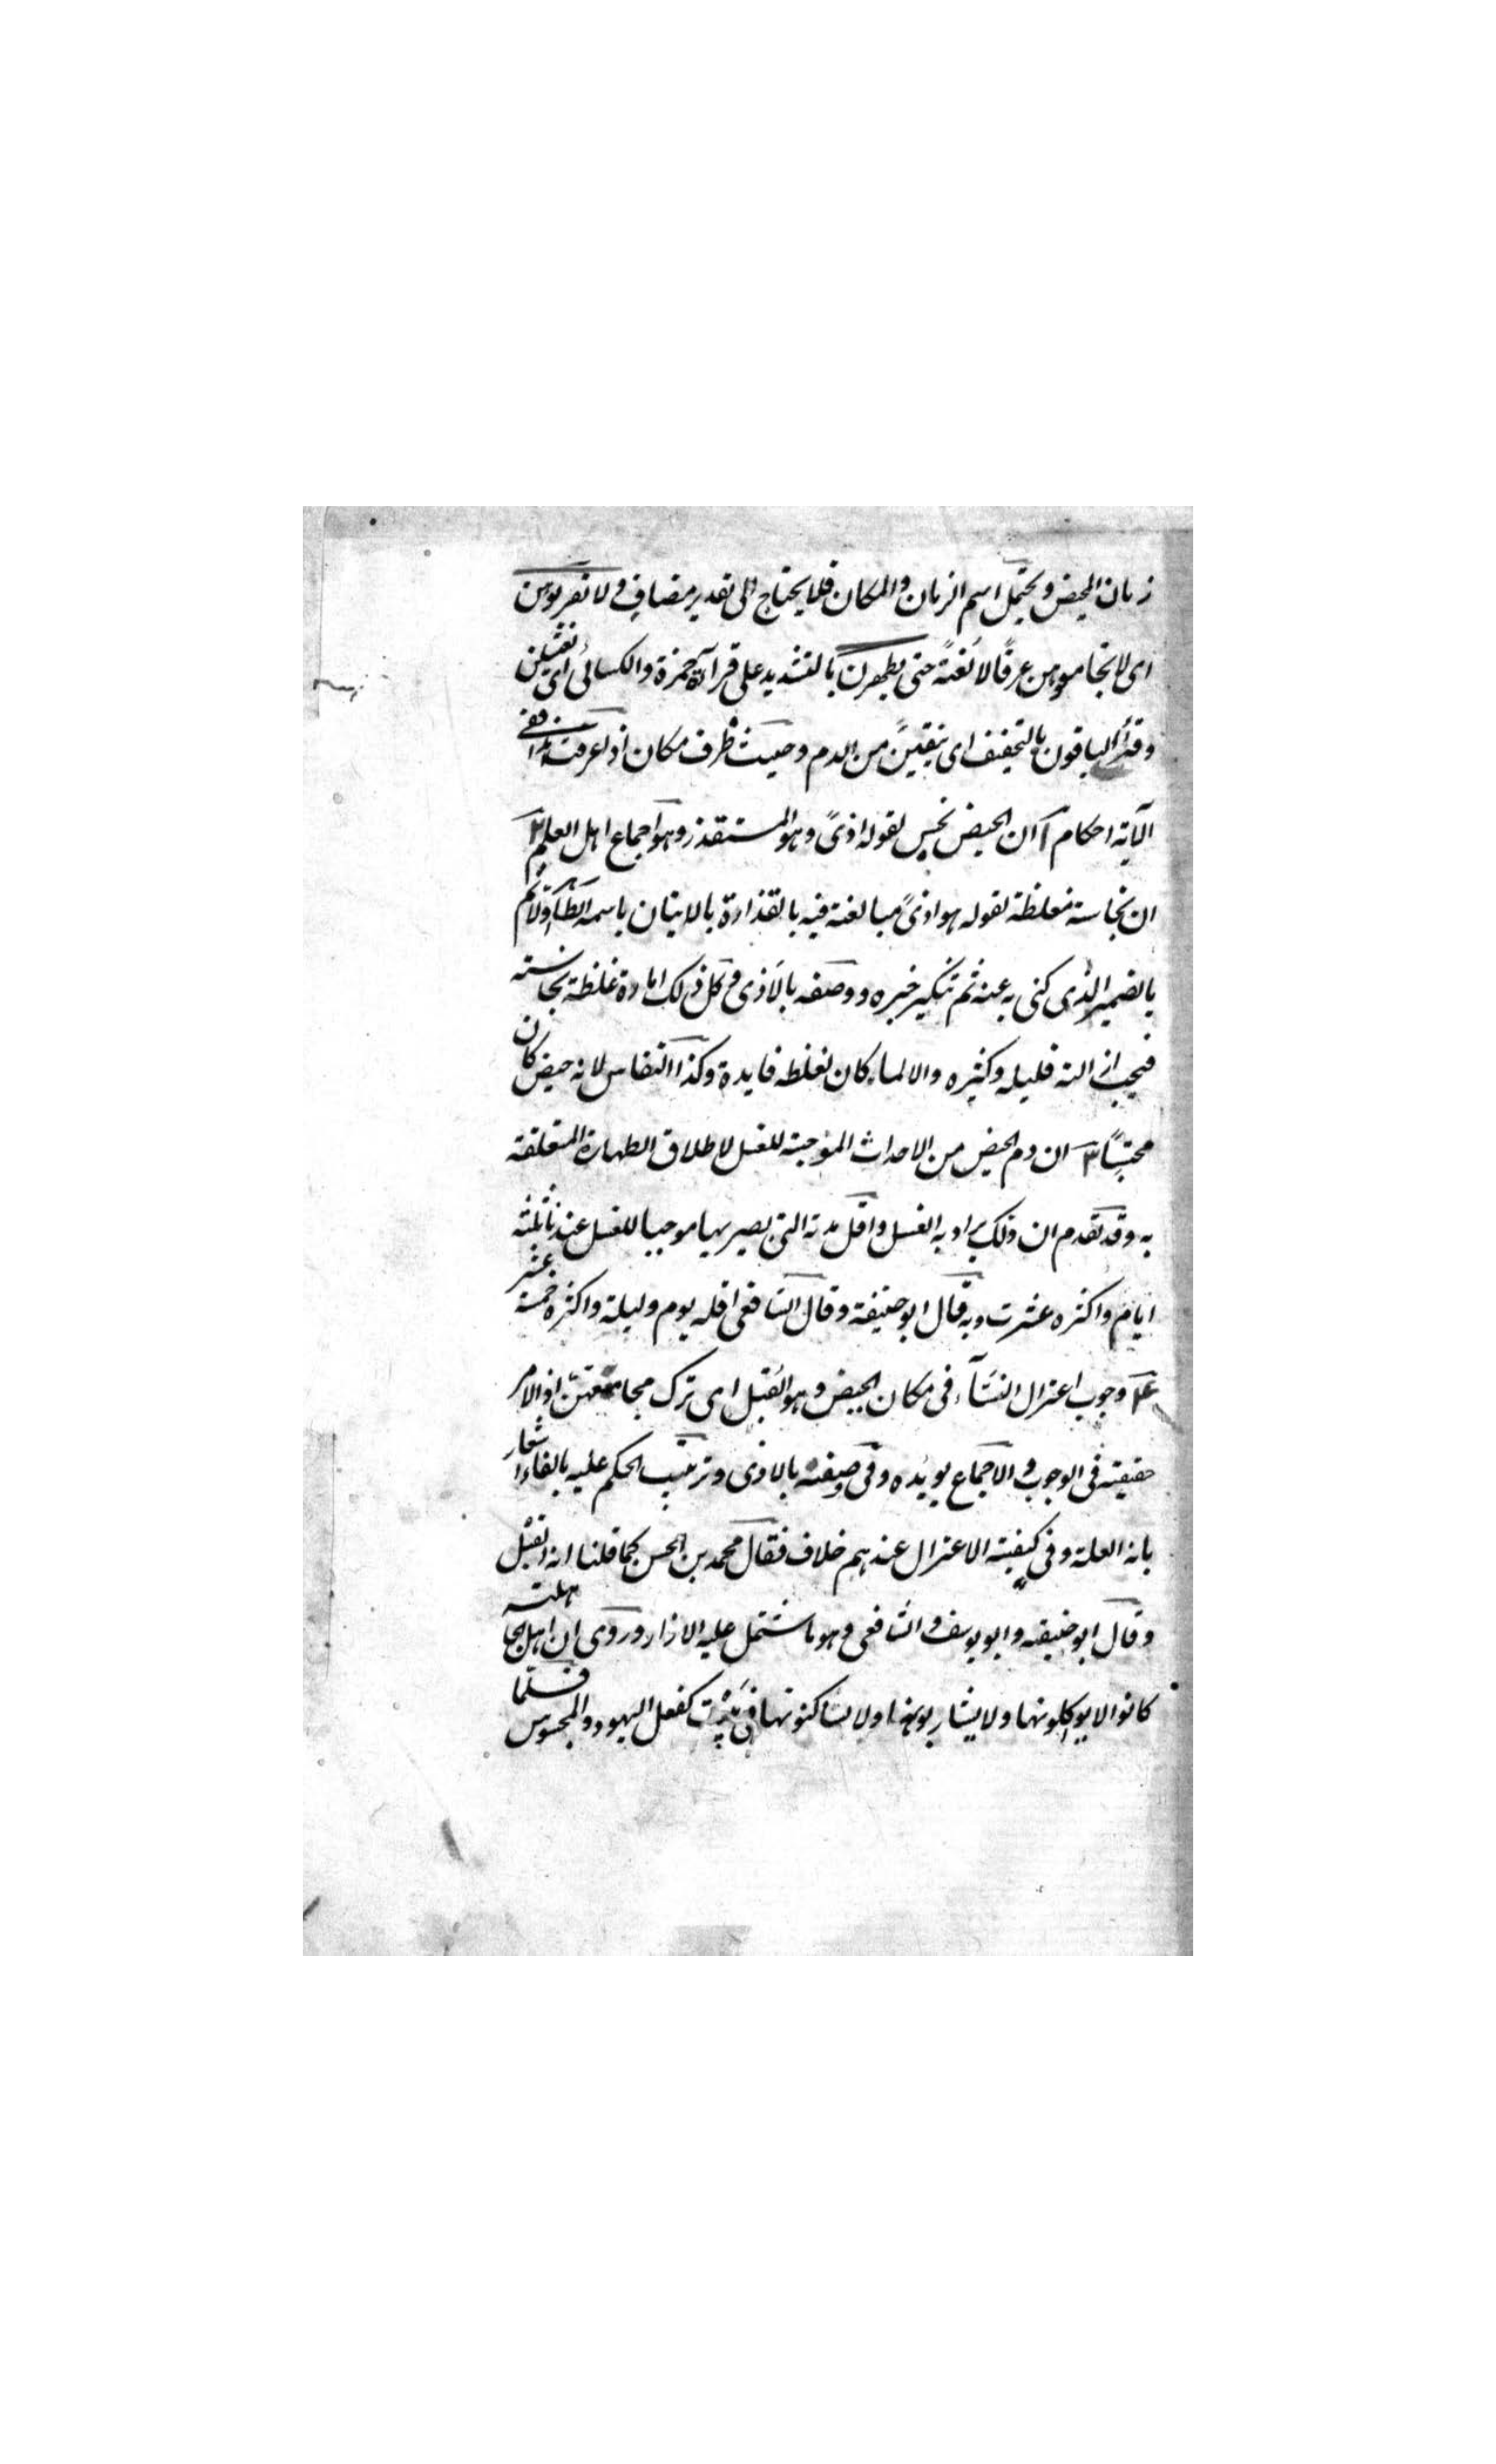 زمان المحيض ويحتمل اسم الزمان والمكان فلا يحتاج الى تقدير مضاف ولا تقربوهن
اى لا تجامعوهن عرفًا لا لغةً حتى يطهرن بالتشديد على قرآءة حمزة والكسائى اى يغتسلن
وقرأ الباقون بالتخفيف اى ينقين من الدم وحيث ظرف مكان اذا عرفت هذا ففى
الآية احكام ١ ان الحيض نجس لقوله اذىً وهو المستقذر وهو اجماع اهل العلم ٢
ان نجاسته مغلظة لقوله هو اذىً مبالغة فيه بالقذارة بالاتيان باسمه الظاهر اولا ثم
بالضمير الذى كنى به عنه ثم تنكير خبره ووصفه بالاذى وكل ذلك امارة غلظة نجاسته
فيجب ازالة قليله وكثيره والا لما كان لغلظه فايدة وكذا النفاس لانه حيض كان
محتبسًا ٣ ان دم الحيض من الاحداث الموجبة للغسل لاطلاق الطهارة المتعلقة
به وقد تقدم ان ذلك يراد به الغسل واقل مدته التى يصير بها موجبا للغسل عندنا ثلثة
ايام واكثره عشرة وبه قال ابو حنيفة وقال الشافعى اقله يوم وليلة واكثره خمسة عشر
٤ وجوب اعتزال النسآء فى مكان الحيض وهو القبل اى ترك مجامعتهن اذ الامر
حقيقة فى الوجوب والاجماع يويده وفى وصفه بالاذى وترتيب الحكم عليه بالفاء اشعار
بانه العلة وفى كيفية الاعتزال عندهم خلاف فقال محمد بن الحسن كما قلنا انه القبل
وقال ابو حنيفة وابو يوسف والشافعى وهو ما يشتمل عليه الازار وروى ان اهل الجاهلية
كانوا لا يواكلونها ولا يشاربونها ولا يساكنونها فى بيت كفعل اليهود والمجوس فلما